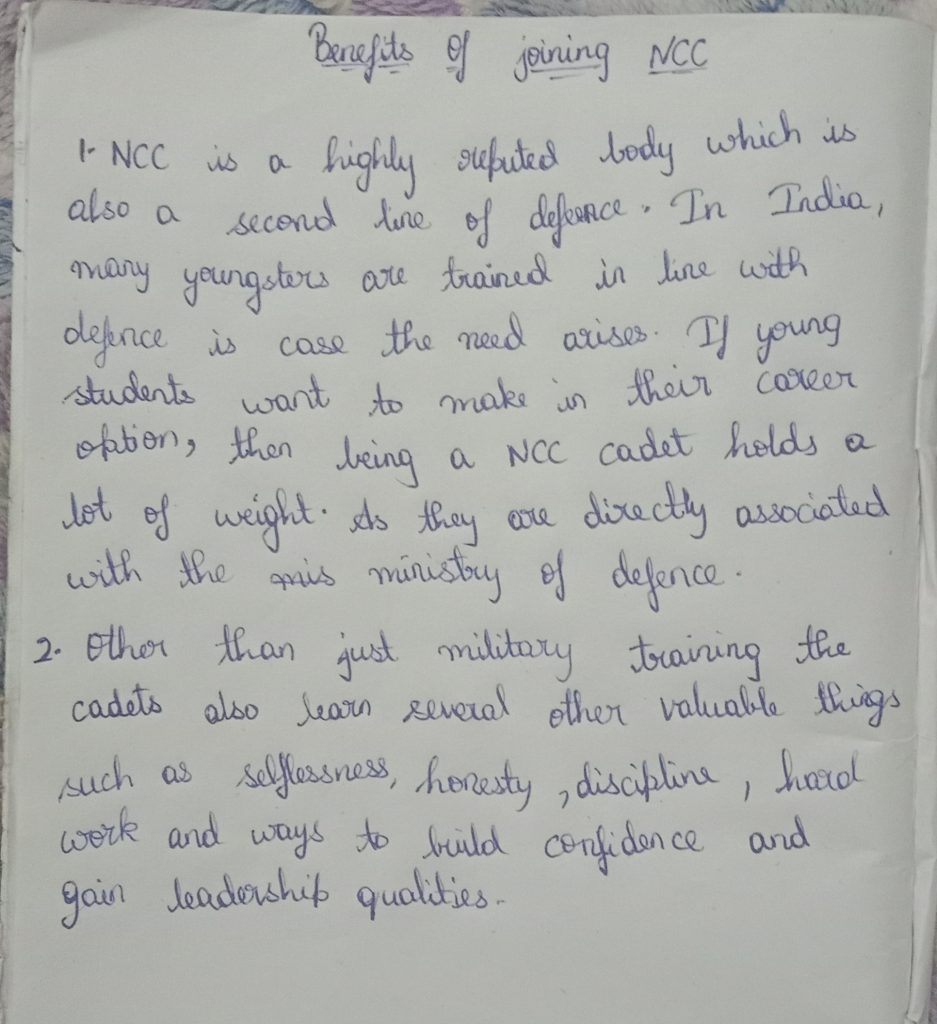 Benefits of joining NCC
1. NCC is a highly reputed body which is
also a second line of defence. In India,
many youngsters are trained in line with
defence is case the need arises. If young
students want to make in their career
option, then being a NCC cadet holds a
lot of weight. As they are directly associated
with the mis ministry of defence.
2. Other than just military training the
cadets also learn several other valuable things
such as selflessness, honesty, discipline, hard
work and ways to build confidence and
gain leadership qualities.